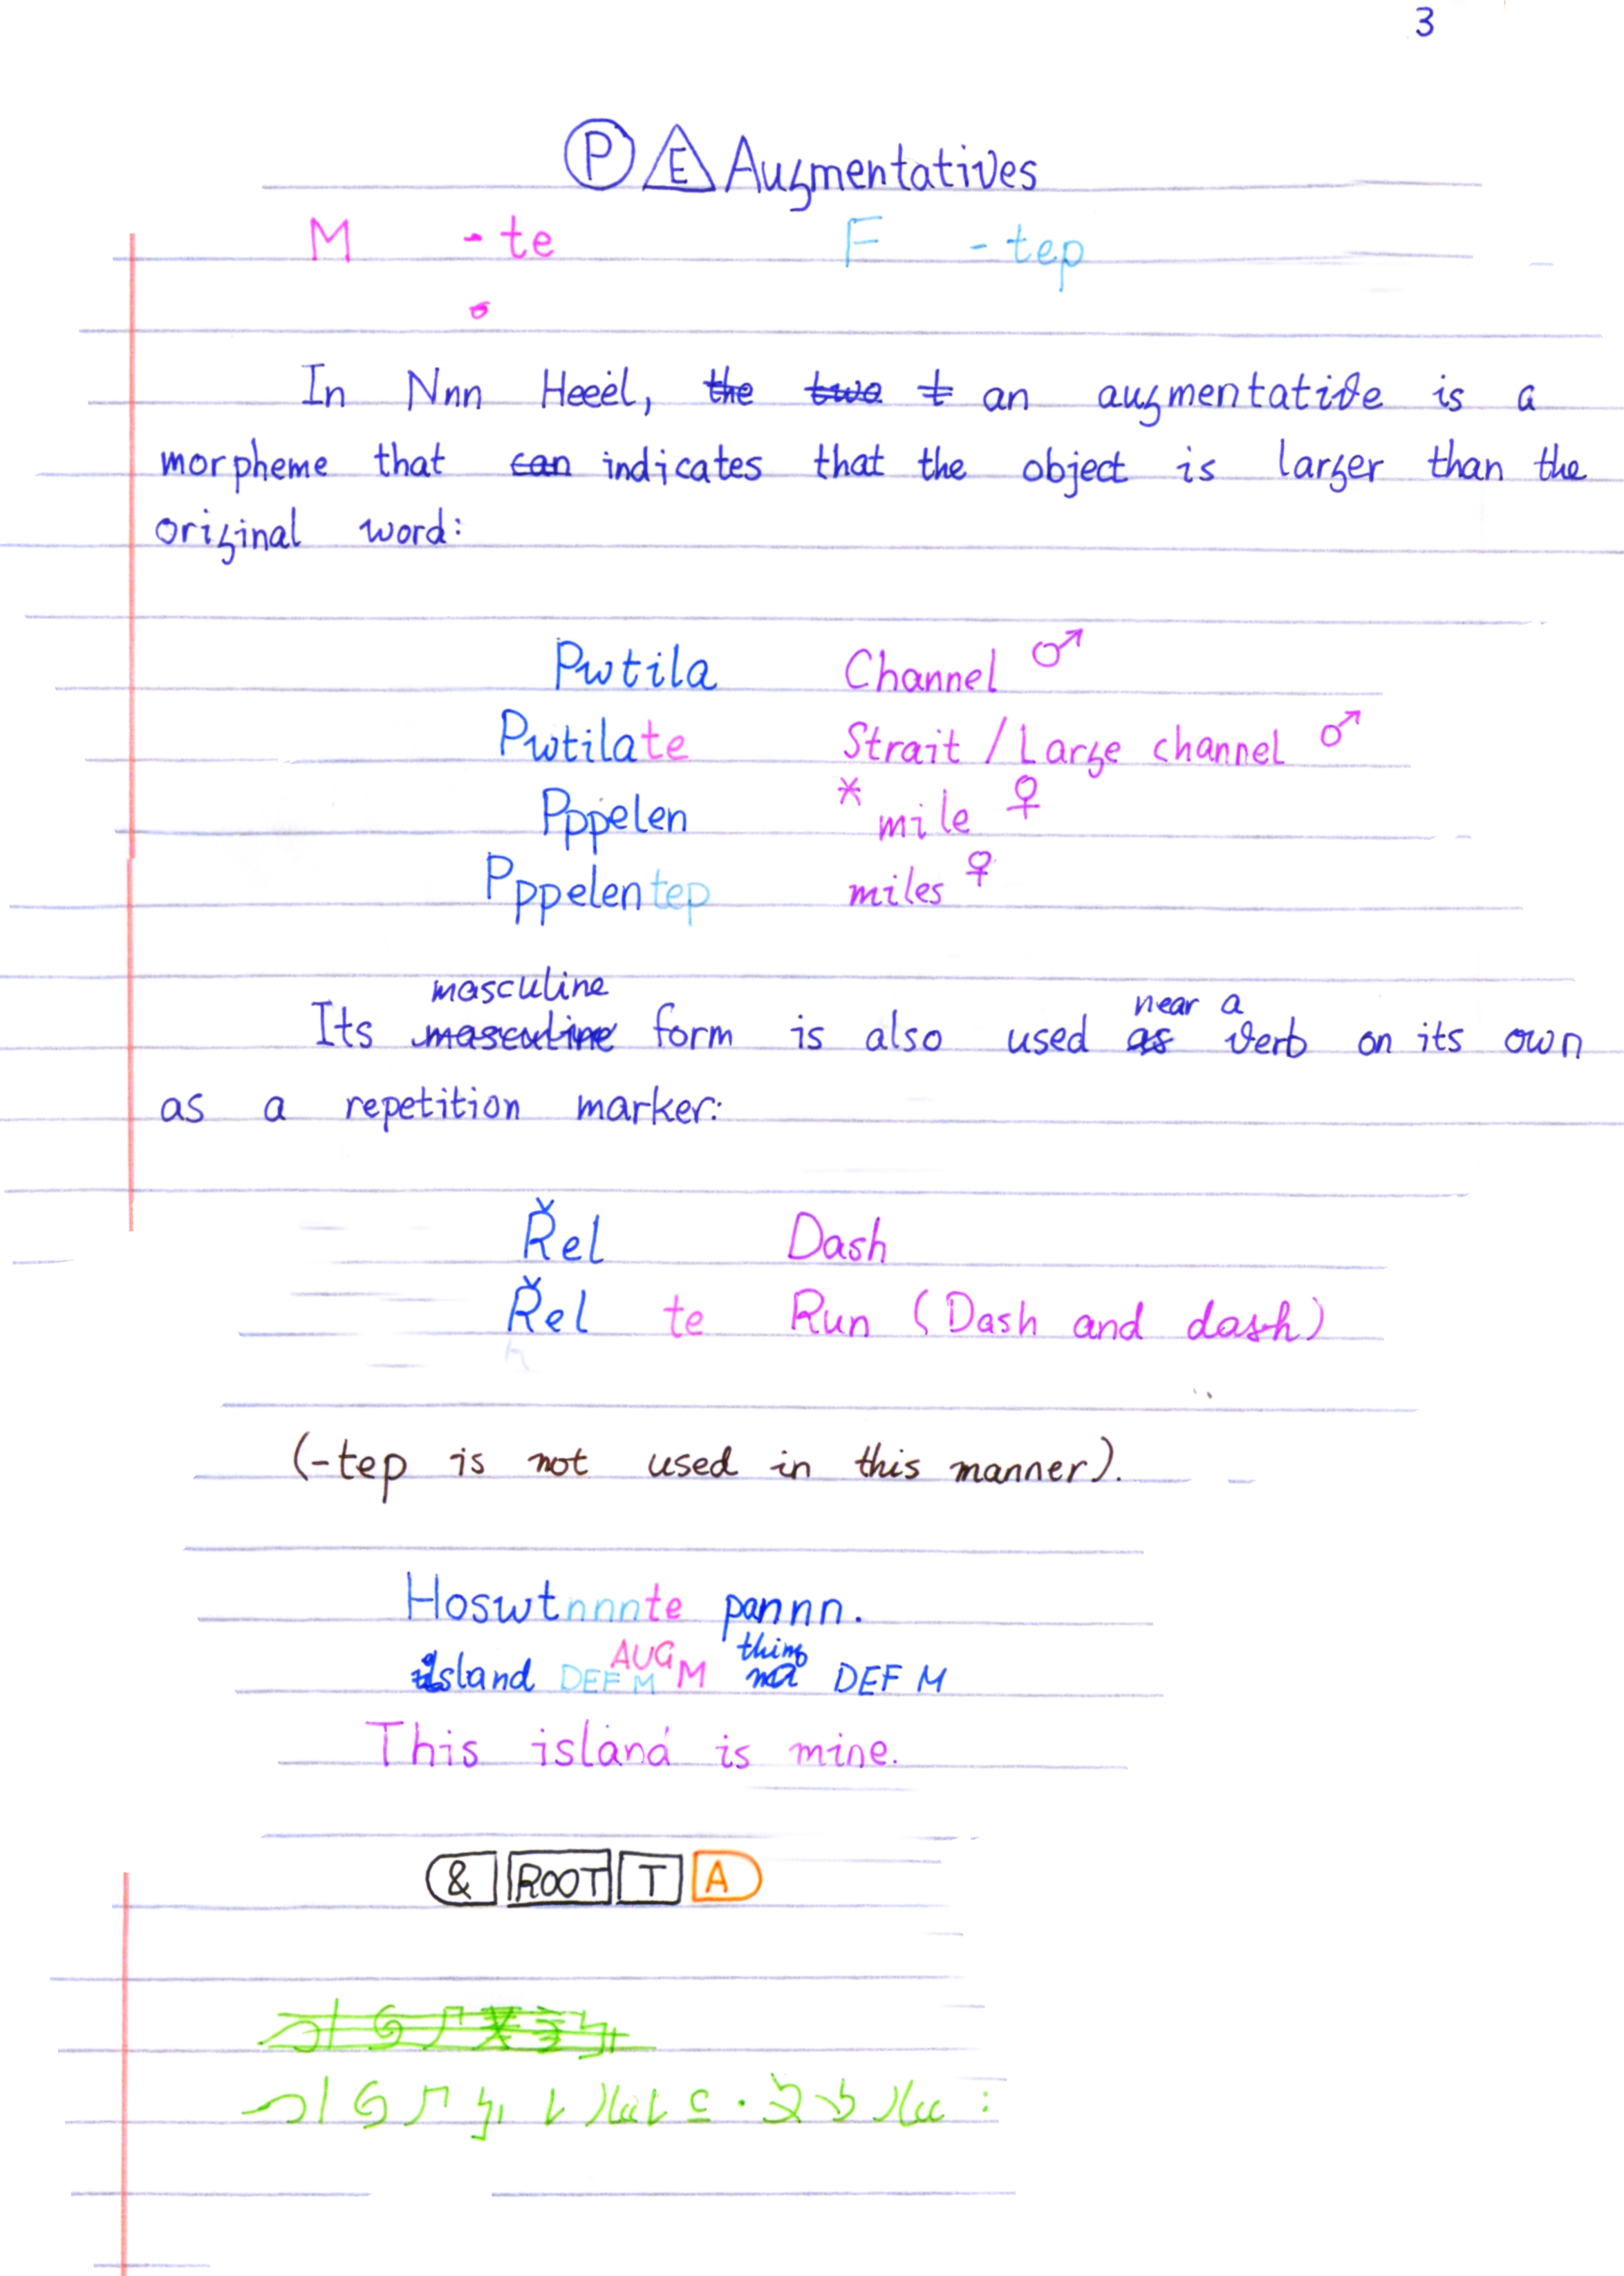 3
P E Augmentatives
M -te F -tep
In Nnn Heeėl, the two t an augmentative is a
morpheme that can indicates that the object is larger than the
original word:
Pwtila Channel ♂
Pwtilate Strait / Large channel ♂
Pppelen * mile ♀
Pppelentep miles ♀
masculine near a
Its masculine form is also used as verb on its own
as a repetition marker:
Řel Dash
Řel te Run (Dash and dash)
(-tep is not used in this manner).
Hoswtnnnte pannn.
AUG thing
island DEF M M DEF M
This island is mine.
& ROOT T A